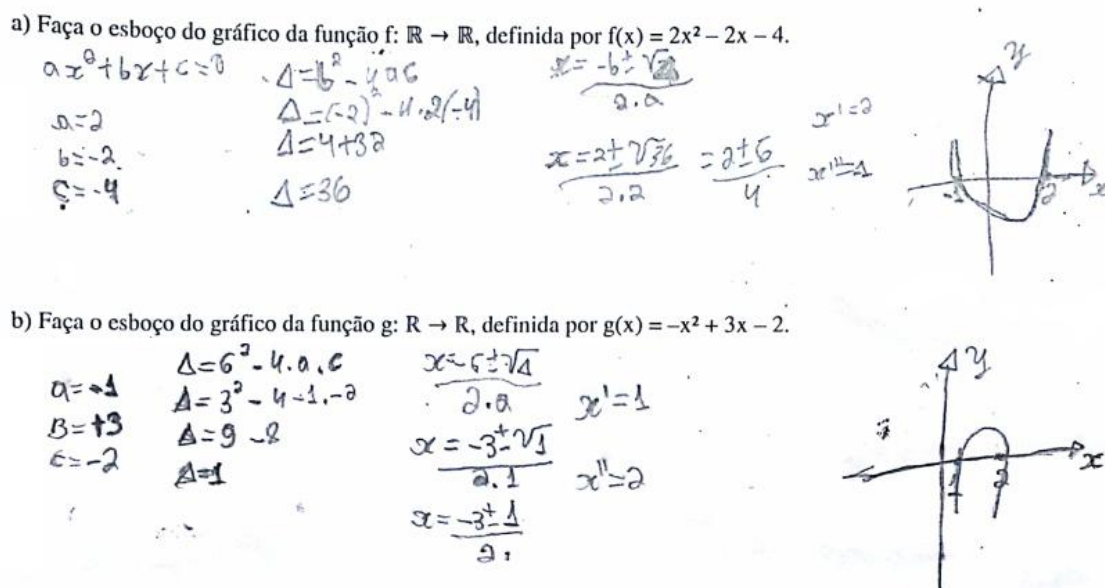 a) Faça o esboço do gráfico da função f: ℝ → ℝ, definida por f(x) = 2x² – 2x – 4.
ax²+bx+c=0
a=2
b=-2
c=-4
Δ=b²-4ac
Δ=(-2)²-4.2(-4)
Δ=4+32
Δ=36
x=-b±√Δ
2.a
x=2±√36 = 2±6
2.2 4
x'=2
x''=-1
y
-1 2 x
b) Faça o esboço do gráfico da função g: R → R, definida por g(x) = –x² + 3x – 2.
a=-1
B=+3
c=-2
Δ=b²-4.a.c
Δ=3²-4-1.-2
Δ=9-8
Δ=1
x=-b±√Δ
2.a
x=-3±√1
2.1
x=-3±1
2.
x'=1
x''=2
y
1 2 x